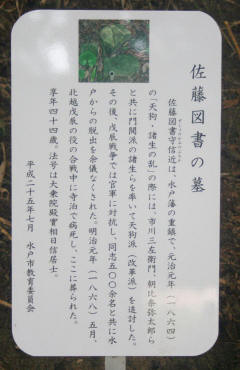 佐藤図書の墓
佐藤図書守信近は、水戸藩の重鎮で、元治元年（一八六四）
の「天狗・諸生の乱」の際には、市川三左衛門、朝比奈弥太郎ら
と共に門閥派の諸生らを率いて天狗派（改革派）を追討した。
その後、戊辰戦争では官軍に対抗し、同志五〇〇余名と共に水
戸からの脱出を余儀なくされた。明治元年（一八六八）五月、
北越戊辰の役の合戦中に寺泊で病死し、ここに葬られた。
享年四十四歳。法号は大乗院殿實相日信居士。
平成二十五年七月　水戸市教育委員会